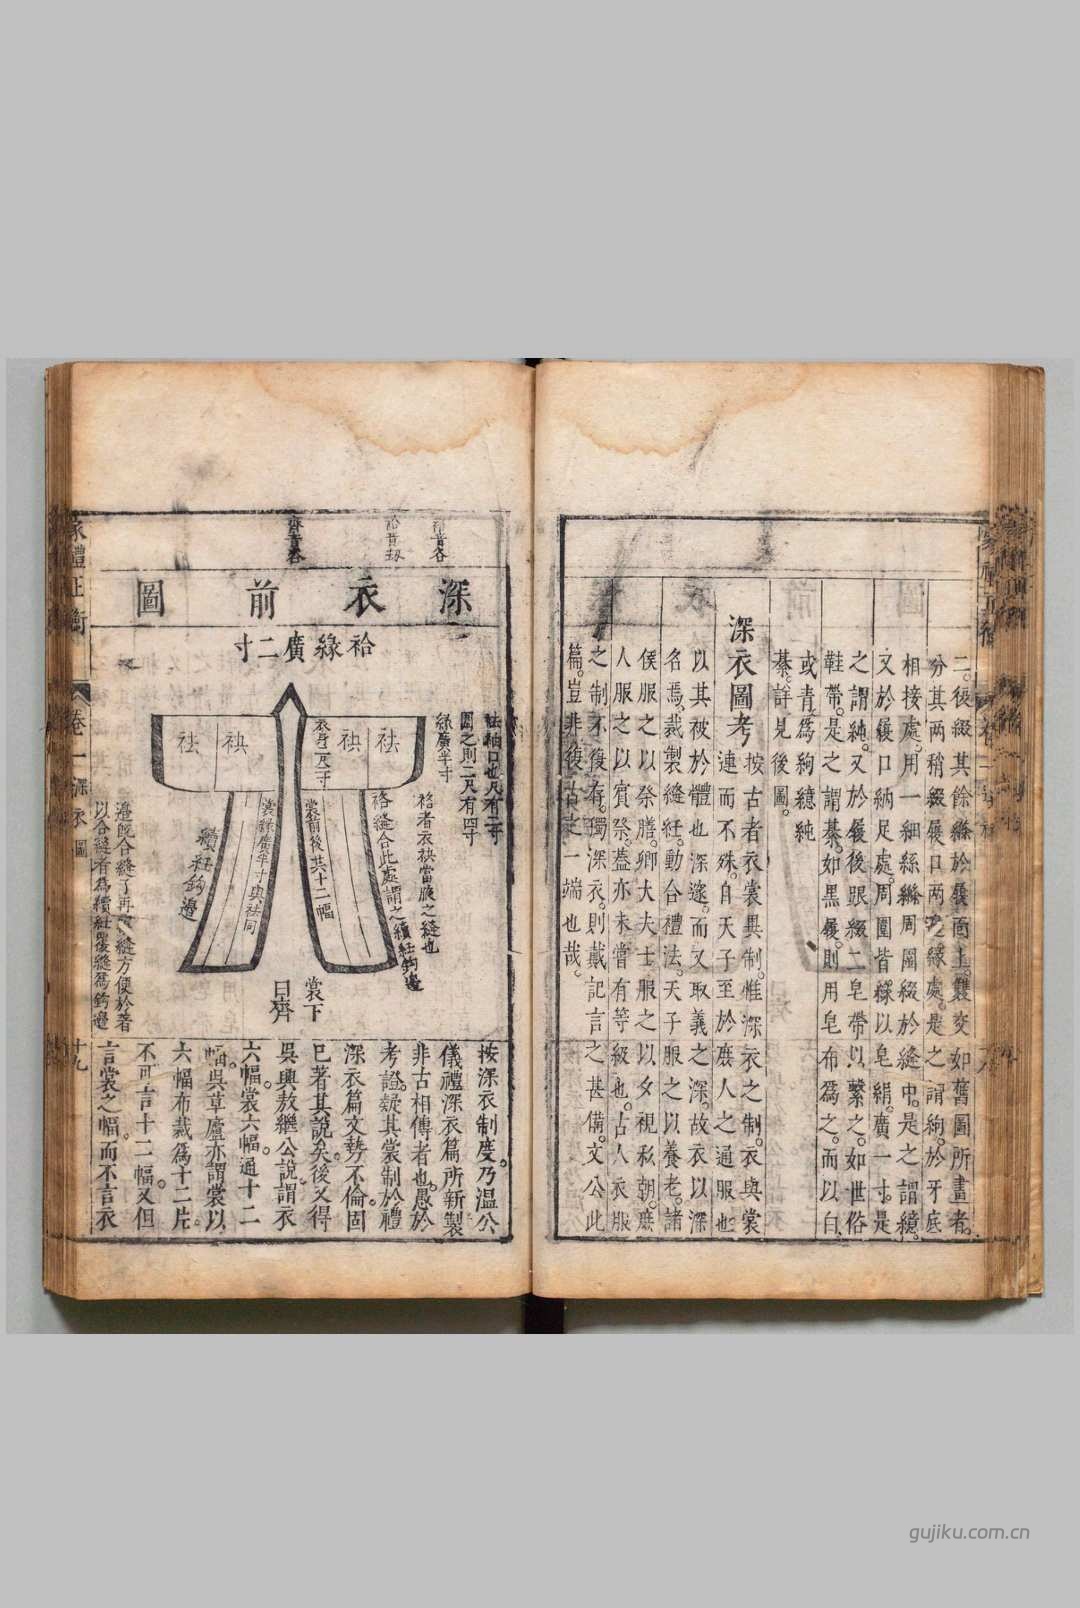 二。後綴其餘絲於履面上。雙交如舊圖所畫者。
分其兩稍綴履口兩之緣處。是之謂絇。於牙底
相接處。用一細絲絛周圍綴於縫中。是之謂繶。
又於履口納足處。周圍皆緣以皂絹。廣一寸。是
之謂純。又於履後跟綴二皂帶以繫之。如世俗
鞋帶。是之謂綦。如黑履。則用皂布爲之。而以白
或青爲絇繶純
綦。詳見後圖。
深衣圖考
按古者衣裳異制。惟深衣之制。衣與裳
連而不殊。自天子至於庶人之通服也
以其被於體也深邃。而又取義之深。故衣以深
名焉。裁製縫紝。動合禮法。天子服之以養老。諸
侯服之以祭膳。卿大夫士服之以夕視私朝。庶
人服之以賓祭。蓋亦未嘗有等級也。古人衣服
之制不復存。獨深衣。則戴記言之甚備。文公此
篇。豈非復古之一端也哉。
袼音各
袷音刼
齊音咨
深衣前圖
袷緣廣二寸
袪袖口也尺有二寸
圍之則二尺有四寸
緣廣半寸
袼者衣袂當腋之縫也
袼縫合此處謂之續衽鈎邊
袪
袂
衣身二尺二寸
袂
袪
裳前後共十二幅
裳緣廣半寸與袪同
續衽鈎邊
裳下
曰齊
邊旣合縫了再縫方便於著
以合縫者爲續衽覆縫爲鈎邊
按深衣制度。乃温公
儀禮深衣篇所新製
非古相傳者也。愚於
考證。疑其裳制於禮
深衣篇文勢不倫。固
已著其說矣。後又得
吳興敖繼公說。謂衣
六幅。裳六幅。通十二
幅。吳草廬亦謂裳以
六幅布裁爲十二片。
不可言十二幅。又但
言裳之幅。而不言衣
家禮正衡
卷一
深衣圖
十九
gujiku.com.cn